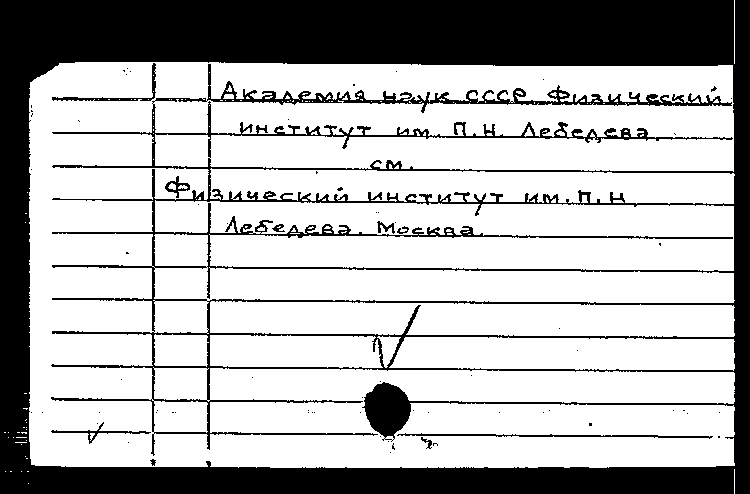 Академия наук СССР. Физический
институт им. П.Н. Лебедева.
см.
Физический институт им. П.Н.
Лебедева. Москва.